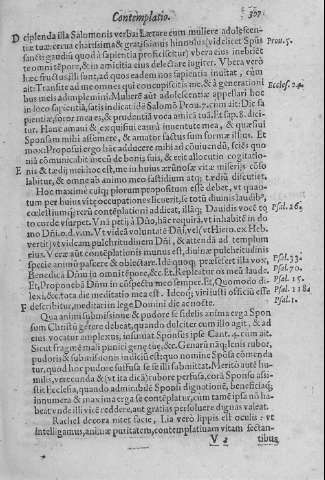 Contemplatio. 307
D cipienda illa Salomonis verba: Lætare cum muliere adolescen-
tiæ tuæ: cerua charissima & gratissimus hinnulus (videlicet Spūs Prou. 5.
sancti gaudij quod à sapientia proficiscitur) vbera eius inebriēt
te omni tēpore, & in amicitia eius delectare iugiter. Vbera verò
hæc fructus illi sunt, ad quos eadem nos sapientia inuitat, cùm
ait: Transite ad me omnes qui concupiscitis me, & à generationi Eccles. 24.
bus meis adimplemini. Mulierē aūt adolescentiæ appellari hoc
in loco sapientiā, satis indicat ide Salomō Prou. 7. cum ait: Dic sa
pientiæ, soror mea es, & prudentiā voca amicā tuā. Et sap. 8. dici-
tur. Hanc amaui & exquisiui eam à iuuentute mea, & quæsiui
Sponsam mihi assumere, & amator factus sum formæ illius. Et
mox: Proposui ergo hāc adducere mihi ad cōuiuendū, sciēs quo
niā cōmunicabit mecū de bonis suis, & erit allocutio cogitatio-
E nis & tædij mei: hoc est, me in huius ærūnosæ vitæ miserijs cōso
labitur, & omne ab animo meo fastidium atq; tædiū discutiet.
Hoc maximè cuiq; piorum propositum esse debet, vt quan-
tum per huius vitę occupationes licuerit, se totū diuinis laudib⁹,
cœlestiumq; rerū contēplationi addicat, illāq; Dauidis vocē to Psal. 26.
to corde vsurpet. Vnā petij à Dño, hāc requirā, vt inhabitē in do
mo Dñi o. d. v. m. Vt videā voluntatē Dñi, vel (vt Hiero. ex Heb.
vertit) vt videam pulchritudinem Dñi, & attendā ad templum
eius. Veræ aūt contēplationis munus est, diuinæ pulchritudinis
specie animū pascere & oblectare. Idē quoq; præ se fert illa vox, Psal. 33.
Benedicā Dñm in omni tēpore, &c. Et. Repleatur os meū laude. Psal. 70.
Et, Proponebā Dñm in cōspectu meo semper. Et, Quomodo di- Psal. 15.
lexi, &c. tota die meditatio mea est. Idemq; viri iusti officiū esse Psal. 118.
F describitur, meditari in lege Domini die ac nocte. Psal. 1.
Qua animi submissione & pudore se fidelis anima erga Spon
sum Christū gerere debeat, quando dulciter cum illo agit, & ad
eius vocatur amplexus, insinuat Sponsus ipse Cant. 4. cum ait.
Sicut fragmē mali punici genę tuę, &c. Genarū nāq; lenis rubor,
pudoris & submissionis indiciū est: quo nomine Spōsa cōmenda
tur, quod hoc pudore suffusa se se illi submittat. Meritò autē hu-
milis, verecunda & (vt ita dicā) rubore perfusa, corā Sponso assi-
stit Ecclesia, quando admirabilē Sponsi dignationē, beneficiaq;
innumera & maxima erga se contēplatur, cum tamē ipsa nō ha-
beat vnde illi vicē reddere, aut gratias persoluere dignas valeat.
Rachel decora nitet facie, Lia verò lippis est oculis: vt
intelligamus, animæ puritatem, contemplatiuam vitam sectan-
V 2 tibus